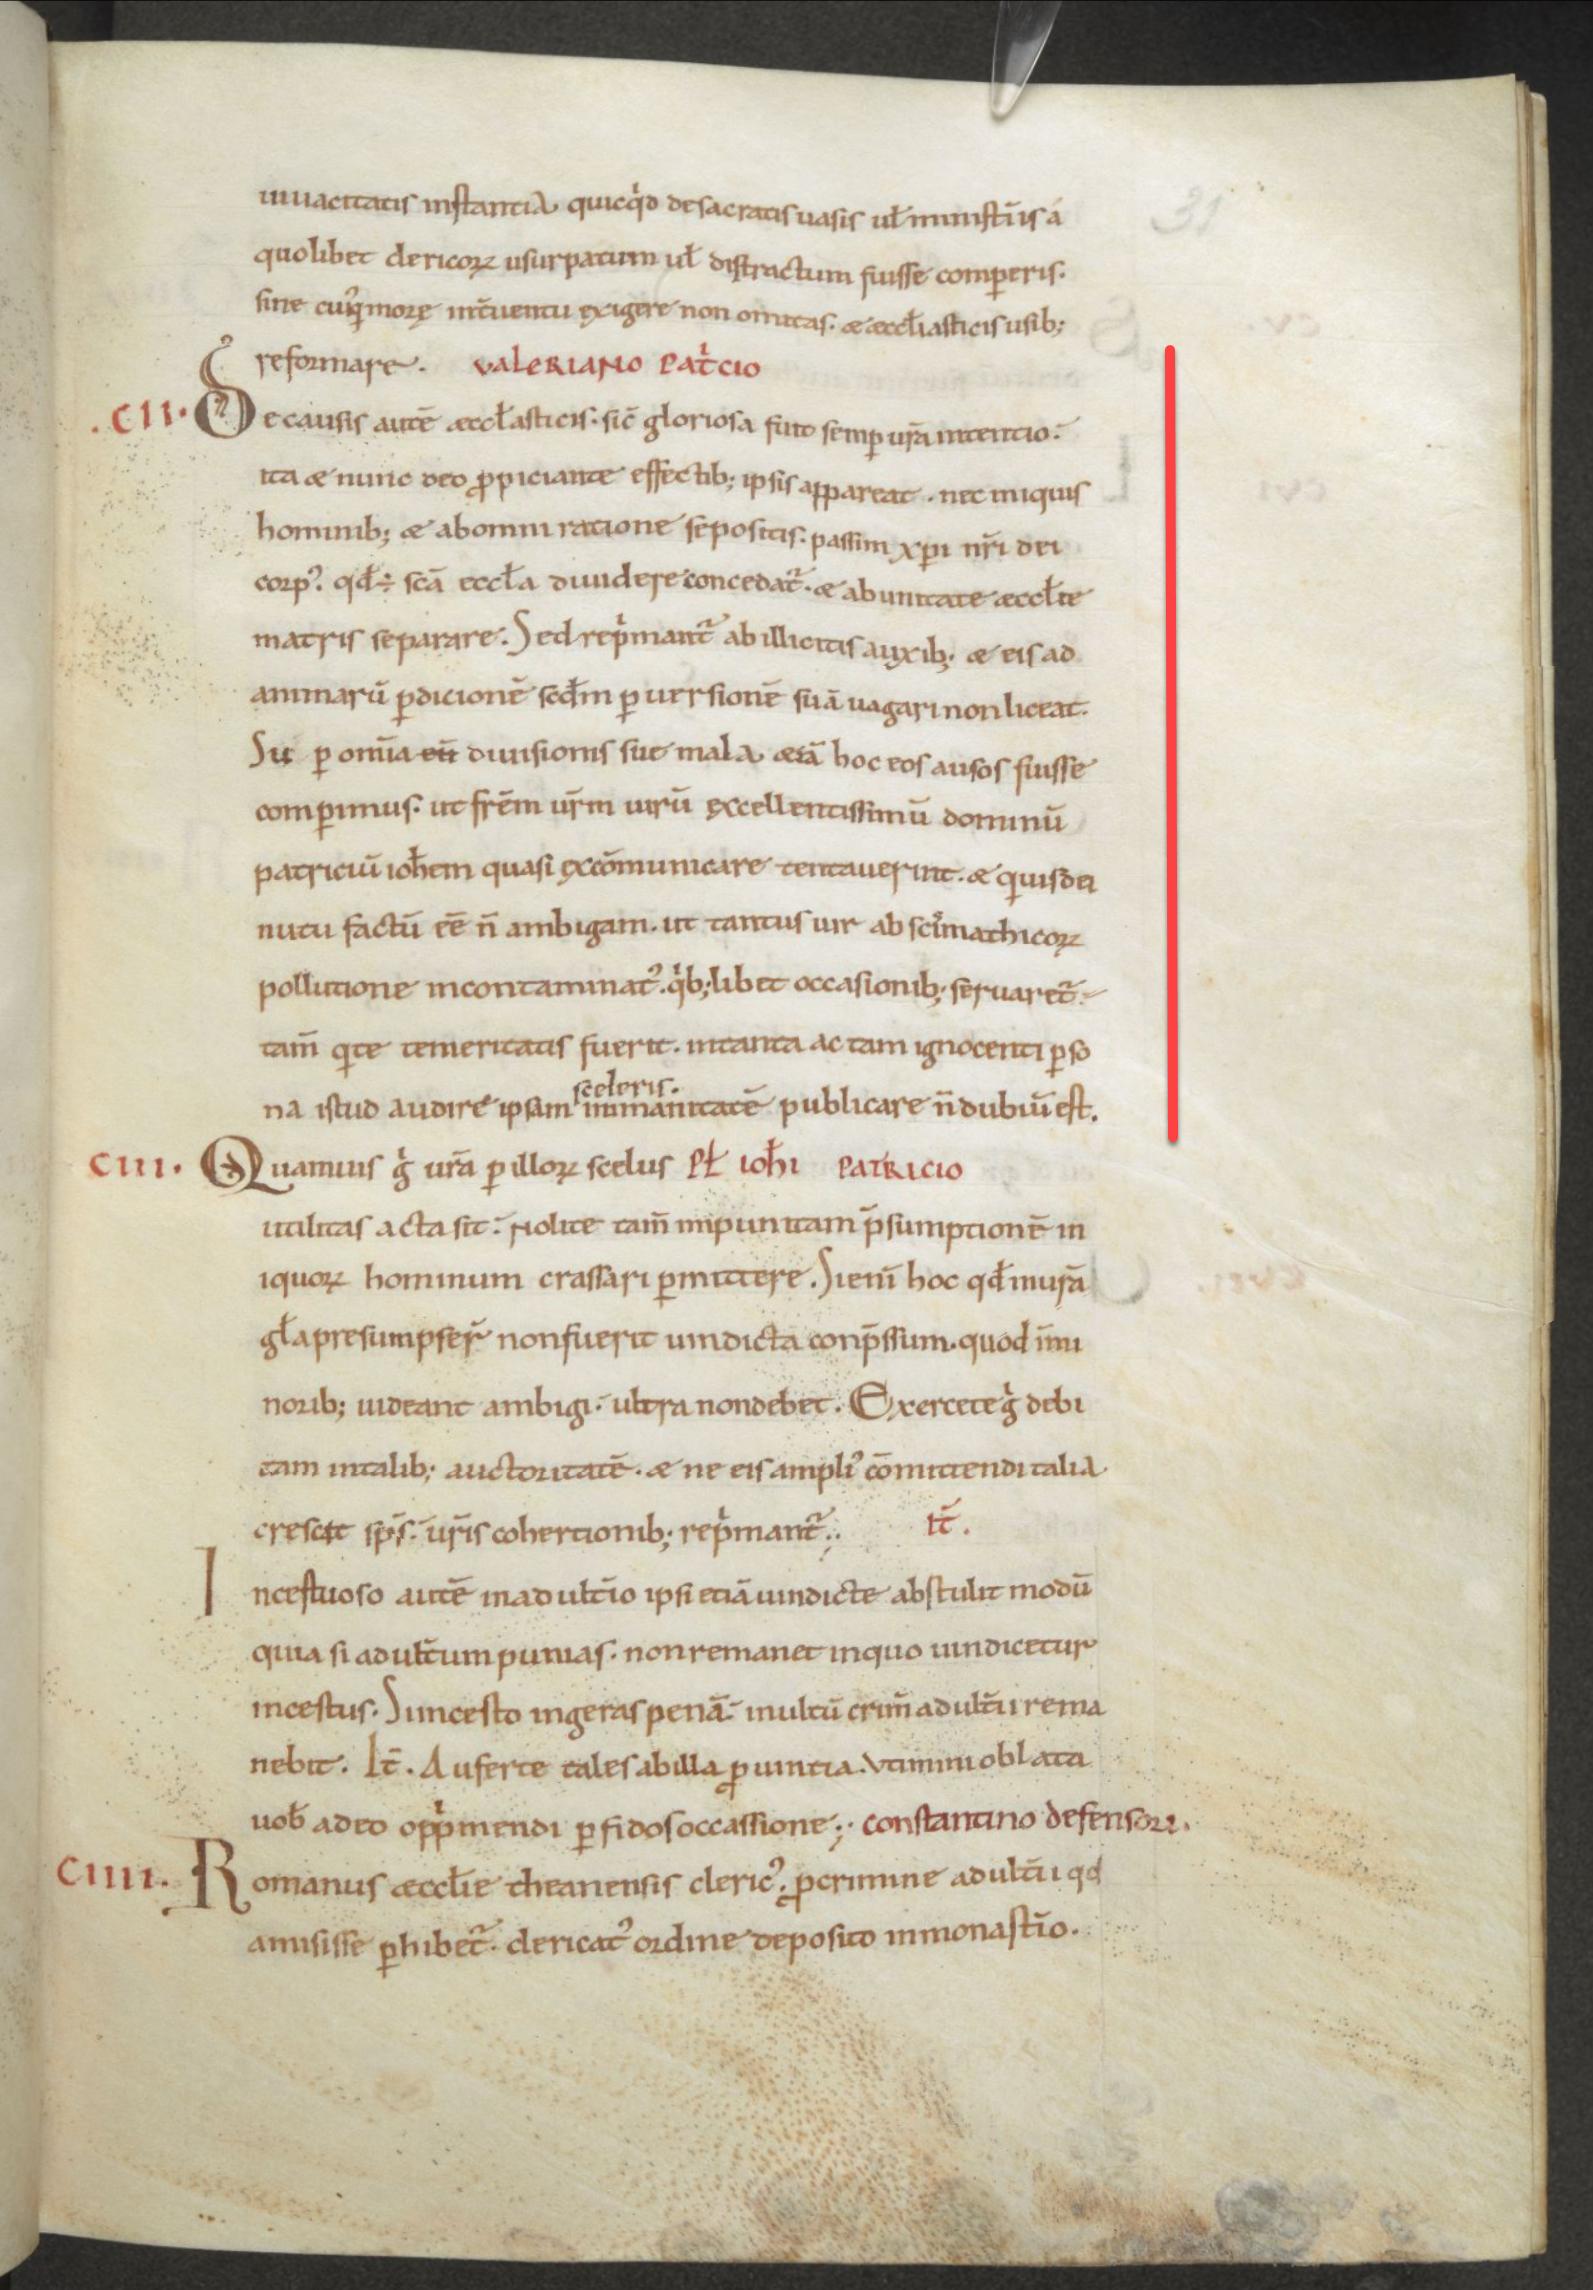 iuuacitatis instantia quicq͛d desacratisuasis ul̄ ministr̄is á
quolibet clericoꝝ usurpatum ul̄ distractum fuisse comꝑeris.
sine cuiq͛morę int̄uentu exigere non omittas. & ęccl̄iasticis usib;
reformare. VALERIANO PAT͛CIO
.CII. De causis autē æccl̄asticis. sic̄ gloriosa fuit semꝑ ur̄a intentio.
ita & nunc deo ꝓpiciante effectib; ipsis appareat. nec iniquis
hominib; & abomni ratione sepositis. passim xp̄i nr̄i dei
corpꝰ. qđ÷ sc̄ā eccl̄a diuidere concedat᷑. & abunitate æccl̄ie
matris separare. Sed rep͛mant᷑ ab illicitis auxib; & eis ad
animarū ꝑdicionē scđm ꝑuersionē suā uagari non liceat.
Sic ꝑ om̄ia eū diuisionis suę mala &iā hoc eos ausos fuisse
comꝑimus. ut fr̄em ur̄m uirū excellentissimū dominū
patriciū ioh̄em quasi excōmunicare tentauerint. & q͛uisdei
nutu factū eē n̄ ambigam. ut tantus uir ab sci͛mathicoꝝ
pollutione incontaminatꝰ. q͛b;libet occasionib; seruaret᷑.
tam̄ q͛te temeritatis fuerit. intanta ac tam ignocenti ꝑso
sceleris.
na istud audire ipsam inmanitatē publicare n̄ dubiū est.
CIII. Quamuis g͛ ur̄a ꝑ illoꝝ scelus PL̄ IOH̄I PATRICIO
utilitas acta sit. Nolite tam̄ impunitam p̄sumptionē in
iquoꝝ hominum crassari ꝑmittere. Si eni̅ hoc qđ inur̄a
gl̄a presumpser̄ nonfuerit uindicta conp̄ssum. quod im̄i
norib; uideant ambigi. ultra nondebet. Exercete g͛ debi
tam intalib; auctoritatē. & ne eis ampliꝰ cōmittendi talia
crescit sp̄s. ur̄is cohertionib; rep͛mant᷑. IT̄.
Incestuoso autē inadult̄io ipsi etiā uindicte abstulit modū
quia si adult̄um punias. nonremanet inquo uindicetur
incestus. Si incesto ingeras penā. inultū crim̄ adult̄ii rema
nebit. It̄. Auferte tales abilla ꝓuintia. Vtimini oblata
uob̄ a deo opp͛mendi ꝑfidos occassione;. constantino defensori.
CIIII. Romanus æccl̄ie theanensis clericꝰ. ꝓcrimine adult̄ii qđ
amisisse ꝑhibet᷑. clericatꝰ ordine deposito inmonast̄io.